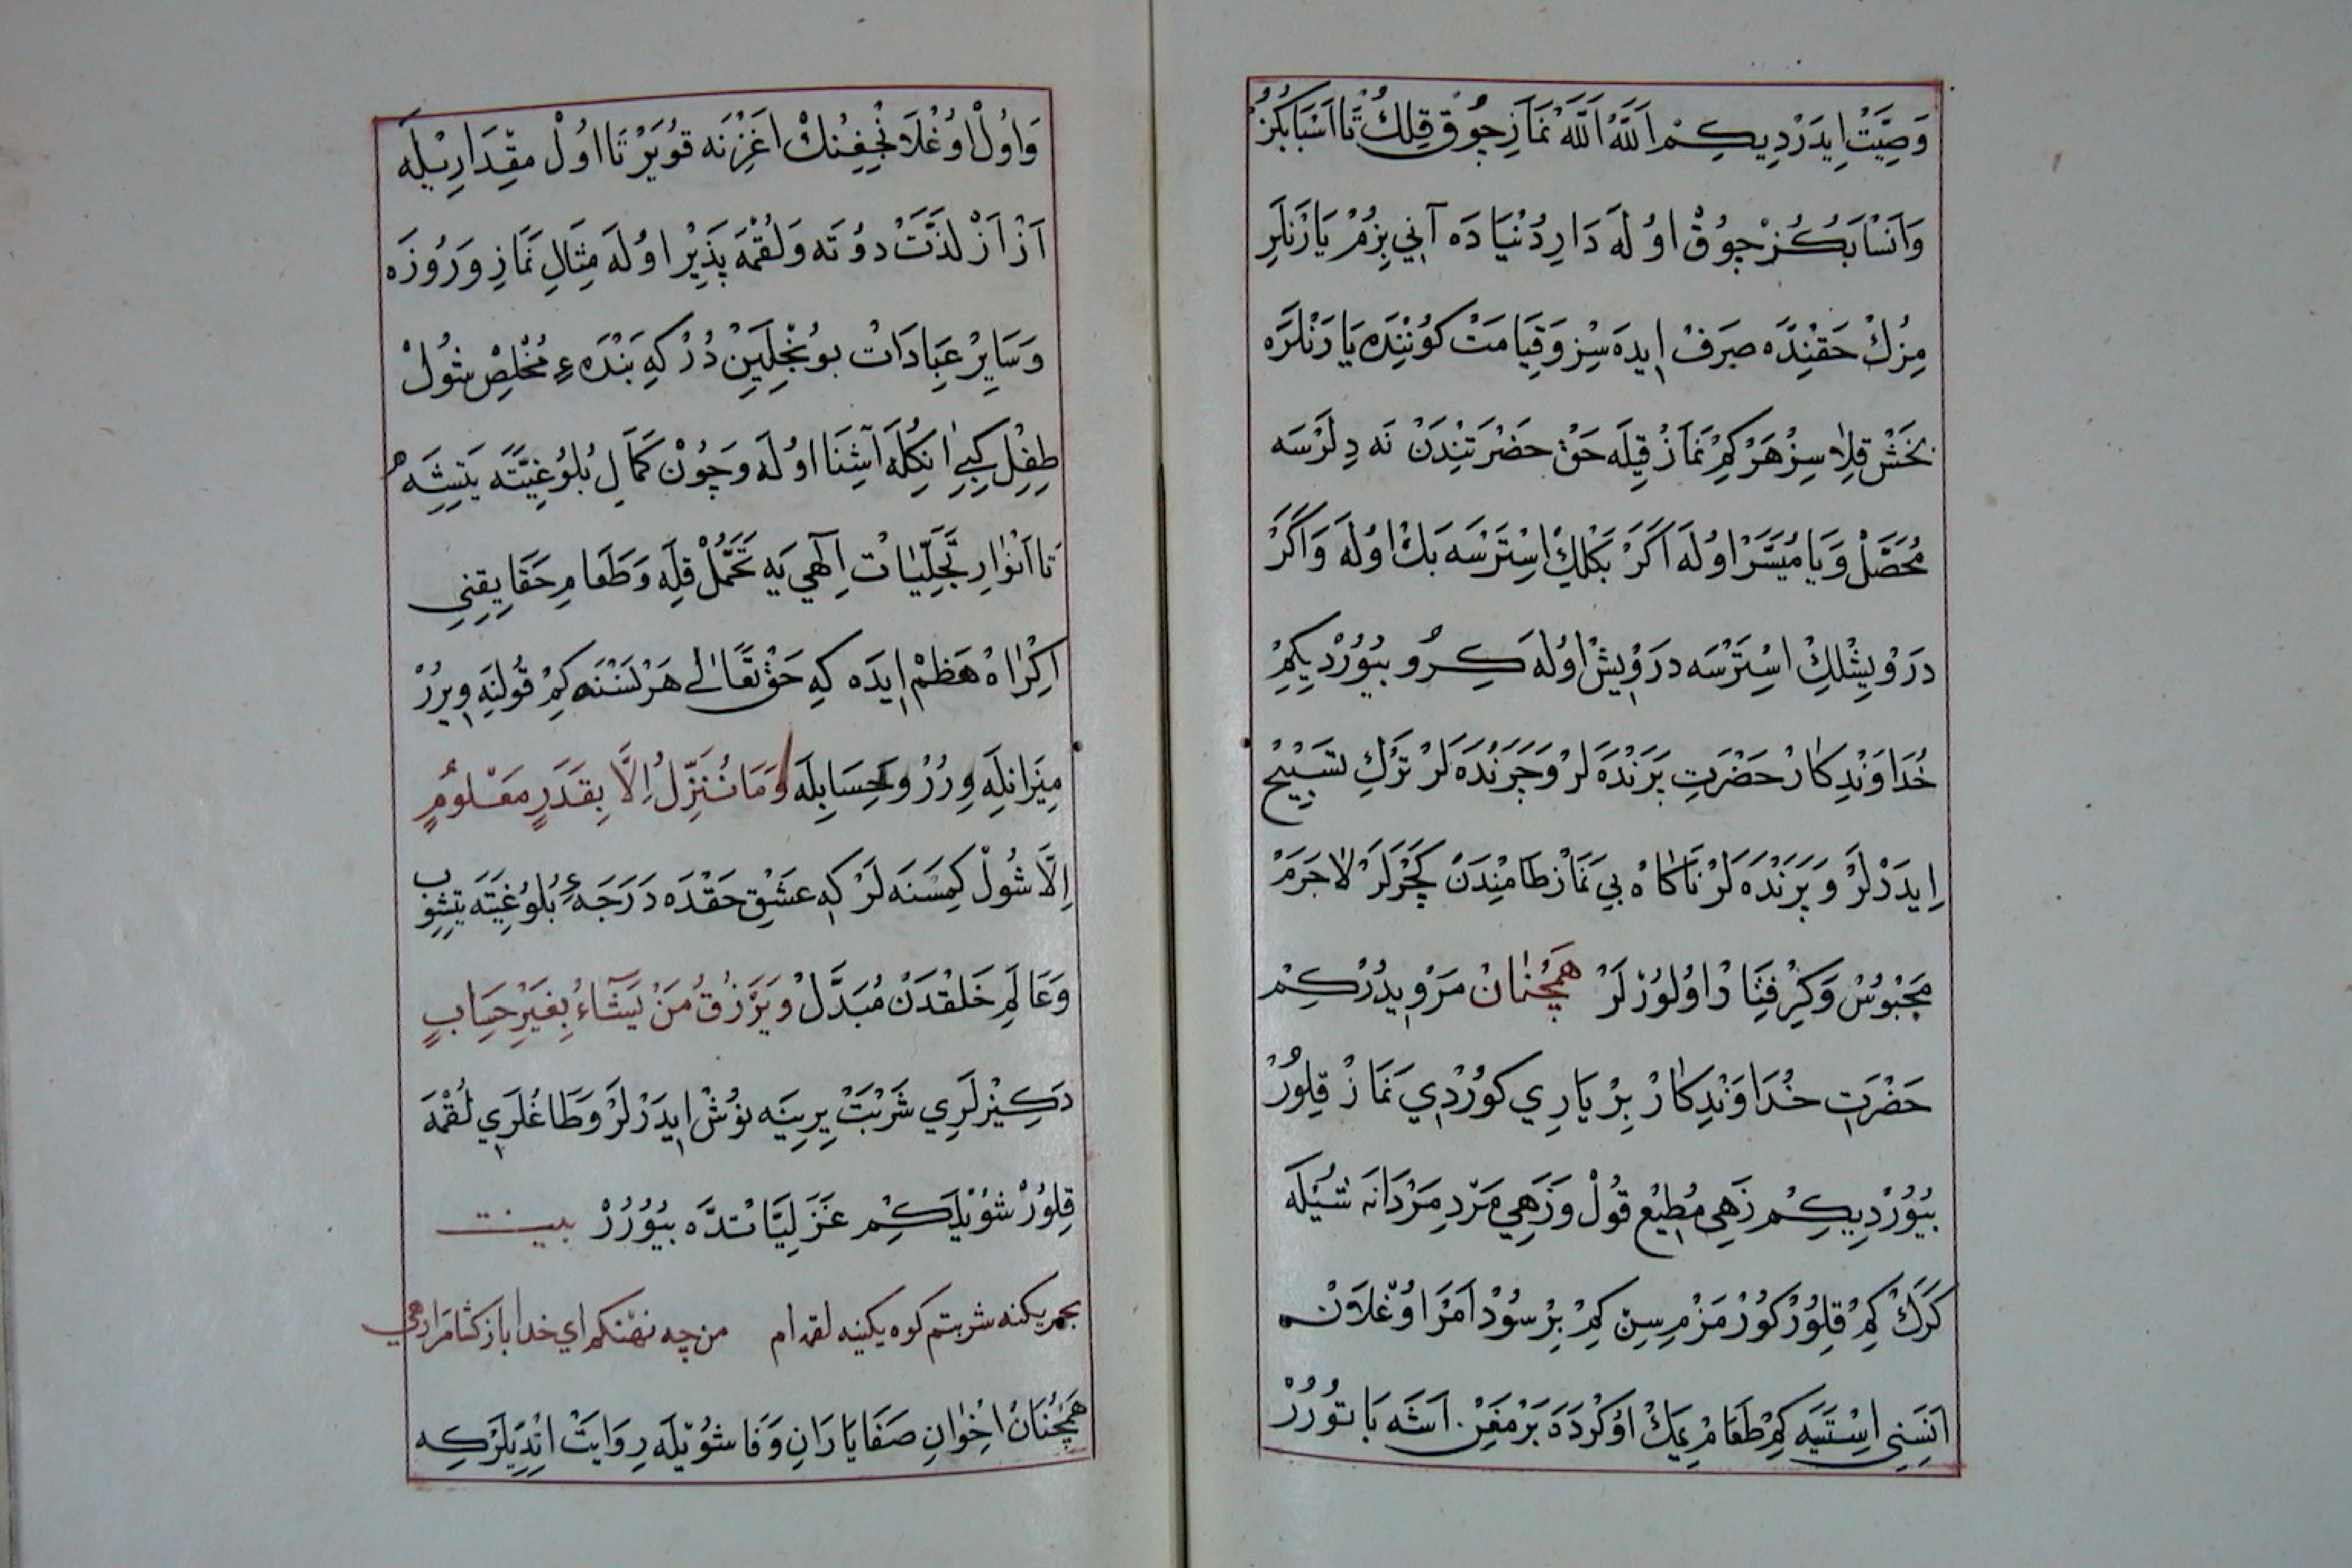 وَصِيَّتْ اِيدَرْدِيكِمْ اَللّٰه اَللّٰه نَمَازِ جُوقْ قِلِكُ تَا اَسْبَابِكُزْ
وَاَنْسَابِكُزْ جُوقْ اوُلَه دَارِ دُنْيَادَه آنِي بِزُمْ يَارَنْلَرِ
مِزُكْ حَقِنْدَه صَرَفْ اِيدَه سِزْ وَقِيَامَتْ كوُنِنْدَه يَارَنْلَرَه
بَخَشْ قِلَاسِزْ هَرْ كِمْ نَمَازْ قِيلَه حَقْ حَضْرَتِنْدَنْ نَه دِلَرْسَه
مُحَصَّلْ وَيَا مُيَسَّرْ اوُلَه اَكَرْ بَكْلِكْ اِسْتَرْسَه بَكْ اوُلَه وَاَكَرْ
دَرْوِيشْلِكْ اِسْتَرْسَه دَرْوِيشْ اوُلَه كِرُو بُيُوُرْدِيكِمْ
خُدَاوَنْدِكَارْ حَضْرَتِ بَرَنْدَه لَرْ وَجَرَنْدَه لَرْ تَرْكِ تَسْبِيحْ
اِيدَرْلَرْ وَپَرَنْدَه لَرْ نَاكَاهْ بِي نَمَازْ طَامِنْدَنْ كَچَرْلَرْ لاَجَرَمْ
مَحْبُوسْ وَكِرِفْتَارْ اوُلوُرْلَرْ هَمْچُنَانْ مَرْوِيدُرْكِمْ
حَضْرَتِ خُدَاوَنْدِكَارْ بِرْ يَارِي كوُرْدِي نَمَازْ قِلوُرْ
بُيُوُرْدِيكِمْ زَهِي مُطِيعْ قُولْ وَزَهِي مَرْدِ مَرْدَانَه شُيْلَه
كَرَكْ كِمْ قِلوُرْ كوُرْمَزْمِسِنْ كِمْ بِرْ سوُدْ اَمَرْ اوُغْلَانْ
اَنَسِنِي اِسْتَيَه كِمْ طَعَامْ يِمَكْ اوُكْرَدَه بَرْمَغِنْ اَشَه بَاتوُرُرْ
وَاوُلْ اوُغْلَانْجِغِنُكْ اَغْزِنَه قوُيَرْ تَا اوُلْ مِقْدَارِيلَه
اَزْ اَزْ لَذَّتْ دوُتَه وَلُقْمَه پَذِيرْ اوُلَه مِثَالِ نَمَازِ وَرُوزَه
وَسَايِرْ عِبَادَاتْ بوُنْجِلَيِنْ دُرْ كِه بَنْدَهءِ مُخْلِصْ شُولْ
طِفِلْ كِبِي اَنِكْلَه آشِنَا اوُلَه وَچوُنْ كَمَالِ بُلوُغِيَّتَه يَتِشَه هُ
تَا اَنْوَارِ تَجَلِّيَاتْ اِلٰهِي يَه تَحَمُّلْ قِلَه وَطَعَامِ حَقَايِقِنِي
اِكْرَاهْ هَظْمْ اِيدَه كِه حَقْ تَعَالٰي هَرْ نَسْنَه كِمْ قُولِنَه وِيرُرْ
مِيزَانِلَه وِرُرْ وَحِسَابِلَه وَمَا نُنَزِّلُ اِلَّا بِقَدَرٍ مَعْلُومٍ
اِلَّا شُولْ كِمْسَنَه لَرْ كِه عَشْقِ حَقْدَه دَرَجَهءِ بُلوُغِيَتَه يَتِشُوبْ
وَعَالَمِ خَلْقْدَنْ مُبَدَّلْ وَيَرْزُقُ مَنْ يَشَاءُ بِغَيْرِ حِسَابٍ
دَكِيزْلَرِي شَرْبَتْ يِرِينَه نوُشْ اِيدَرْلَرْ وَطَاغْلَرِي لُقْمَه
قِلوُرْ شوُيْلَكِمْ غَزَلِيَّاتْدَه بُيُوُرُرْ بيت
بحر يكنه شربتم كوه يكينه لقمه ام من چه نهنكم اي خدا باز كشا مرا رهي
هَمْچُنَانْ اِخْوَانِ صَفَا يَارَانِ وَفَا شوُيْلَه رِوَايَتْ اِتْدِيلَرْكِه